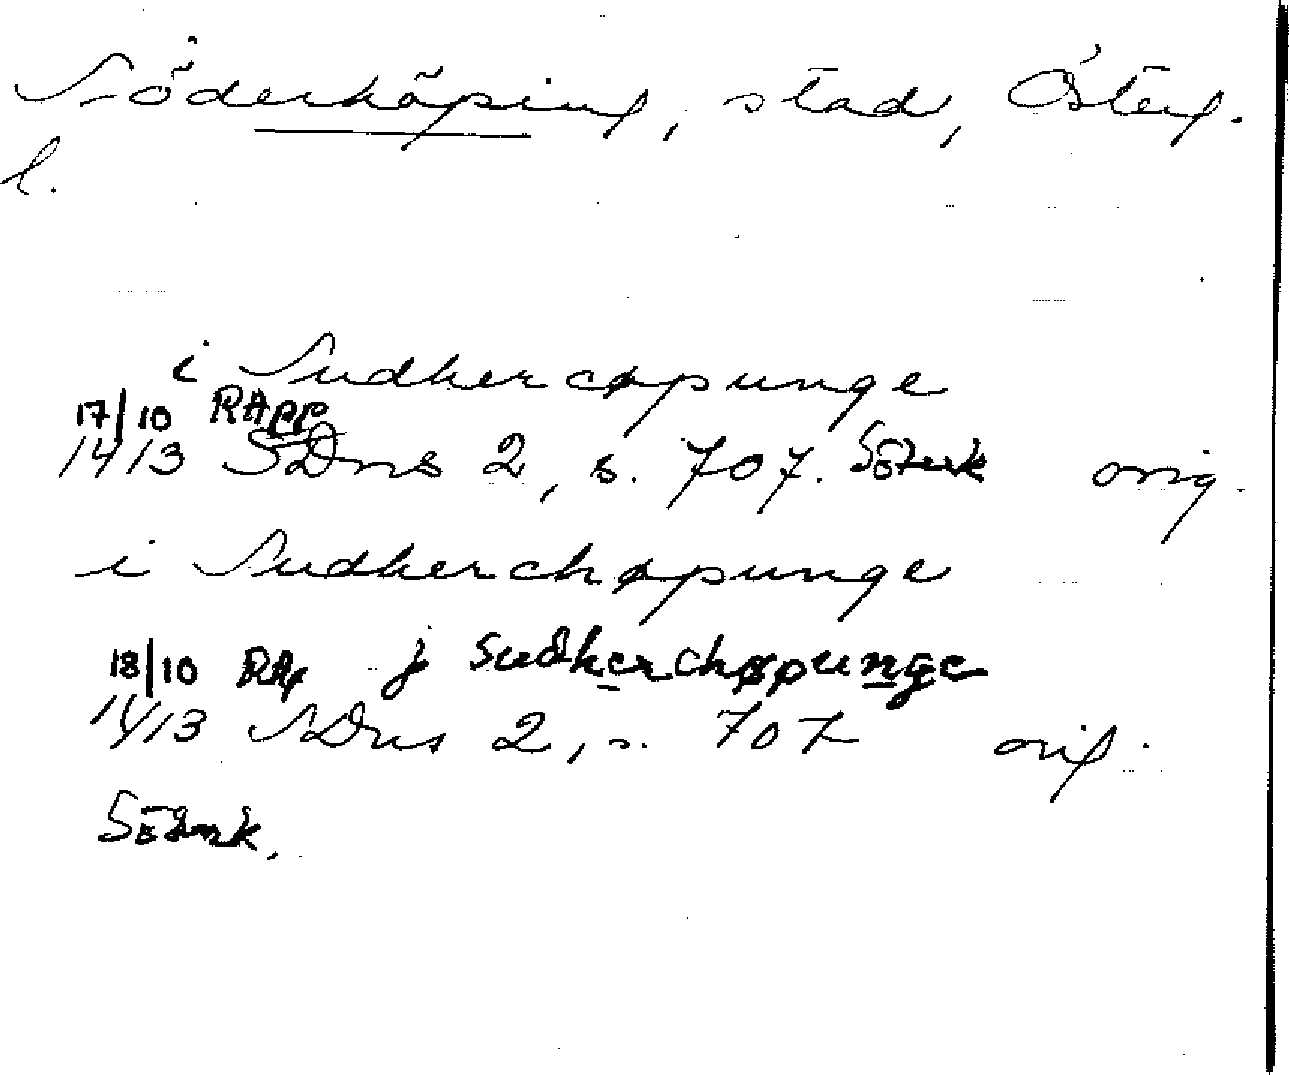 Söderköping, stad, Österg.
l.
i Sudhercøpunge
17/10 RApp
1413 SDns 2, s. 707. orig.
i Sudherchøpunge
18/10 RAp j Sudherchøpunge
1413 SDns 2, s. 707 orig.